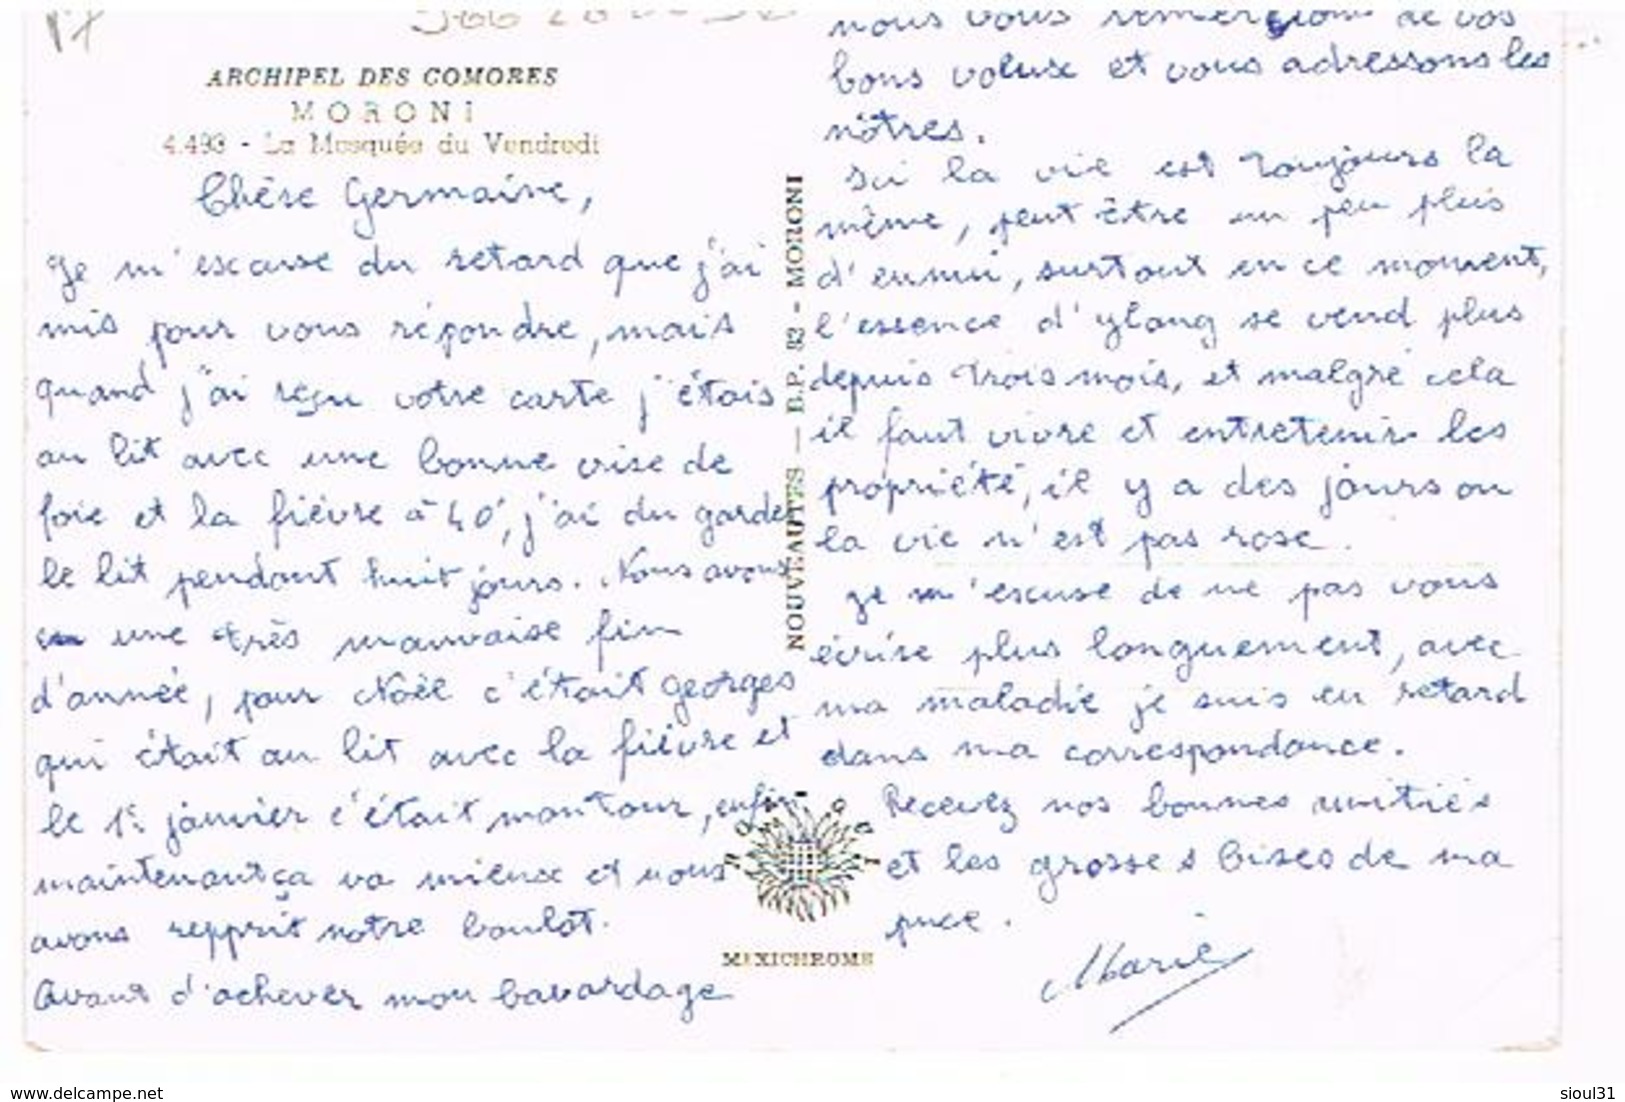 ARCHIPEL DES COMORES
MORONI
4.493 - La Mosquée du Vendredi
Chère Germaine,
Je m'excuse du retard que j'ai
mis pour vous répondre, mais
quand j'ai reçu votre carte j'étais
au lit avec une bonne crise de
foie et la fièvre à 40°, j'ai du garder
le lit pendant huit jours. Nous avons
eu une très mauvaise fin
d'année, pour Noël c'était georges
qui était au lit avec la fièvre et
le 1er janvier c'était mon tour, enfin
maintenant ça va mieux et nous
avons repprit notre boulot.
Avant d'achever mon bavardage
NOUVEAUTES — B.P. 83 - MORONI
MEXICHROME
nous vous remercions de vos
bons voeux et vous adressons les
nôtres.
Ici la vie est toujours la
même, peut être un peu plus
d'ennui, surtout en ce moment,
l'essence d'ylang se vend plus
depuis trois mois, et malgré cela
il faut vivre et entretenir les
propriété, il y a des jours ou
la vie n'est pas rose.
Je m'excuse de ne pas vous
écrire plus longuement, avec
ma maladie je suis en retard
dans ma correspondance.
Recevez nos bonnes amitiés
et les grosses bises de ma
puce.
Marie
www.delcampe.net
sioul31